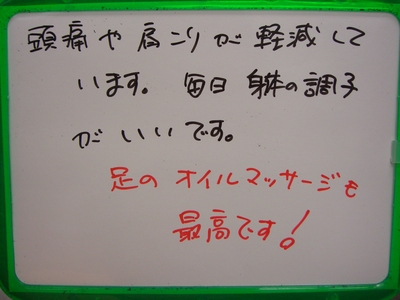 頭痛や肩こりが軽減して
います。毎日身体の調子
がいいです。
足のオイルマッサージも
最高です!